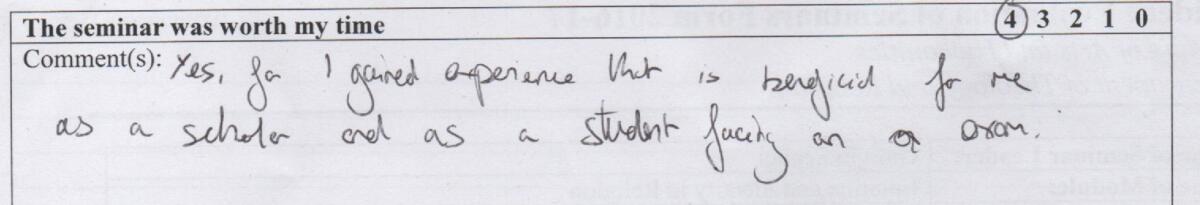 The seminar was worth my time 4 3 2 1 0
Comment(s): Yes, for I gained experience that is beneficial for me
as a scholar and as a student facing an a exam.